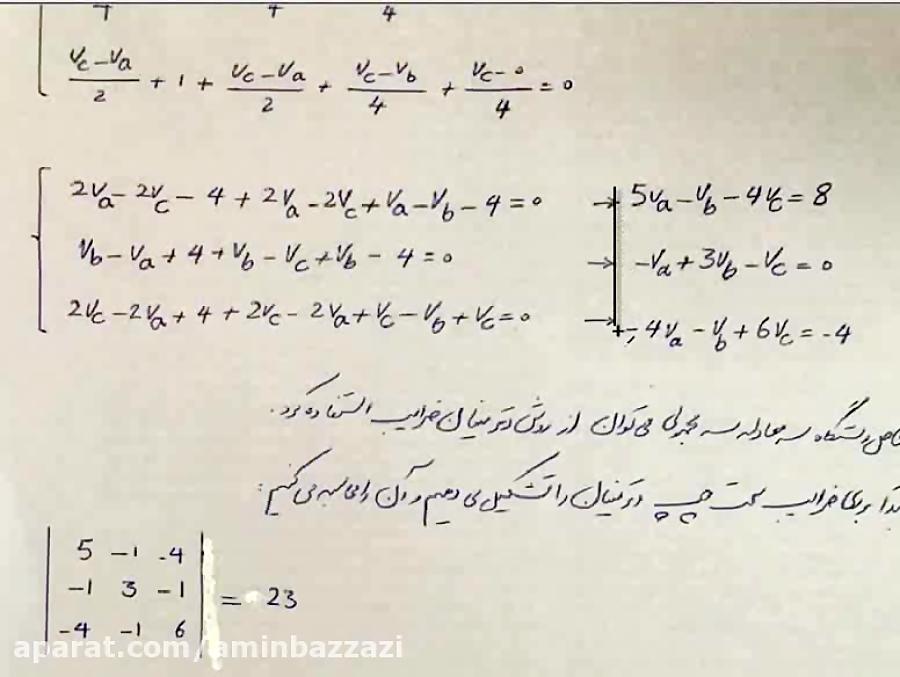 4
(Vc-Va)/2 + 1 + (Vc-Va)/2 + (Vc-Vb)/4 + (Vc-0)/4 = 0
2Va-2Vc-4+2Va-2Vc+Va-Vb-4=0 → 5Va-Vb-4Vc=8
Vb-Va+4+Vb-Vc+Vb-4=0 → -Va+3Vb-Vc=0
2Vc-2Va+4+2Vc-2Va+Vc-Vb+Vc=0 → -4Va-Vb+6Vc=-4
دستگاه سه معادله سه مجهولی می‌توان از روش دترمینال ضرایب استفاده کرد.
برای ضرایب سمت چپ دترمینان را تشکیل می دهیم و آن را محاسبه می کنیم:
5 -1 -4
-1 3 -1 = 23
-4 -1 6
aparat.com/aminbazzazi